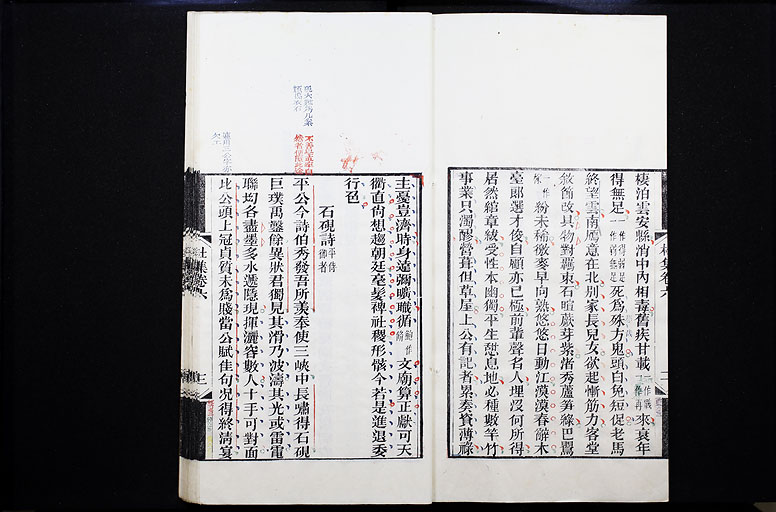 棲泊雲安縣消中內相毒舊疾甘載來衰年
得無足死爲殊方鬼頭白免短促老馬
終望雲南鴈意在北別家長兒女欲起慚筋力客堂
敘節改具物對羈束石暄蕨芽紫渚秀蘆笋綠巴鶯
紛未稀徼麥早向熟悠悠日動江漠漠春辭木
臺郎選才俊自顧亦已極前輩聲名人埋沒何所得
居然綰章紱受性本幽獨平生憩息地必種數竿竹
事業只濁醪營葺但草屋上公有記者累奏資薄祿
主憂豈濟時身遠彌曠職循文廟算正獻可天
衢直尚想趨朝廷毫髮裨社稷形骸今若是進退委
行色
石硯詩平侍御者
平公今詩伯秀發吾所羨奉使三峽中長嘯得石硯
巨璞禹鑿餘異狀君獨見其滑乃波濤其光或雷電
聯坳各盡墨多水遞隱現揮灑容數人十手可對面
比公頭上冠貞質未爲賤當公賦佳句況得終清宴
杜集卷六